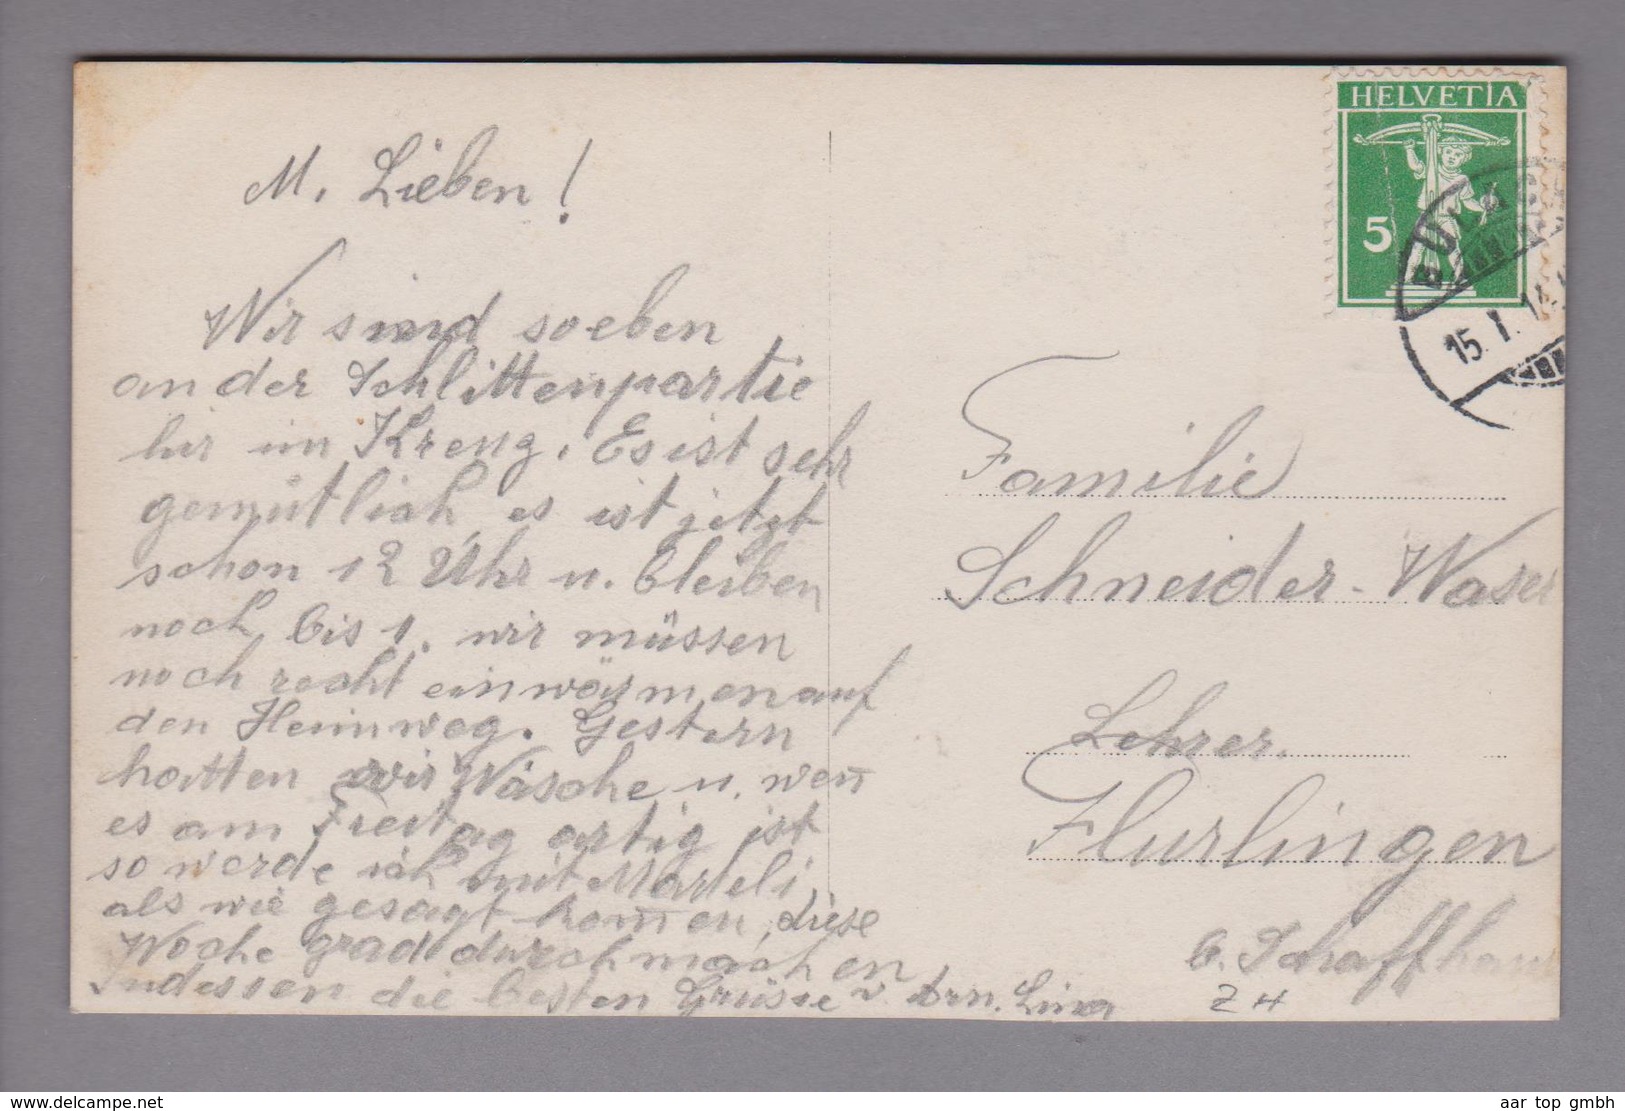 M. Lieben!
Wir sind soeben
an der Schlittenpartie
hir im Kreuz. Es ist sehr
gemütlich, es ist jetzt
schon 12 Uhr u. bleiben
noch bis 1. wir müssen
noch recht einwärmen auf
den Heimweg. Gestern
hatten wir Wäsche u. wen̄
es am Freitag artig ist
so werde ich mit Marteli
als wie gesagt kom̄en, diese
Woche grad durchmachen
Indessen die besten Grüsse v. Lina
HELVETIA
5
BÜLACH
15. I. 14.
Familie
Schneider-Waser
Lehrer.
Flurlingen
b. Schaffhaus
ZH
www.delcampe.net
aar top gmbh